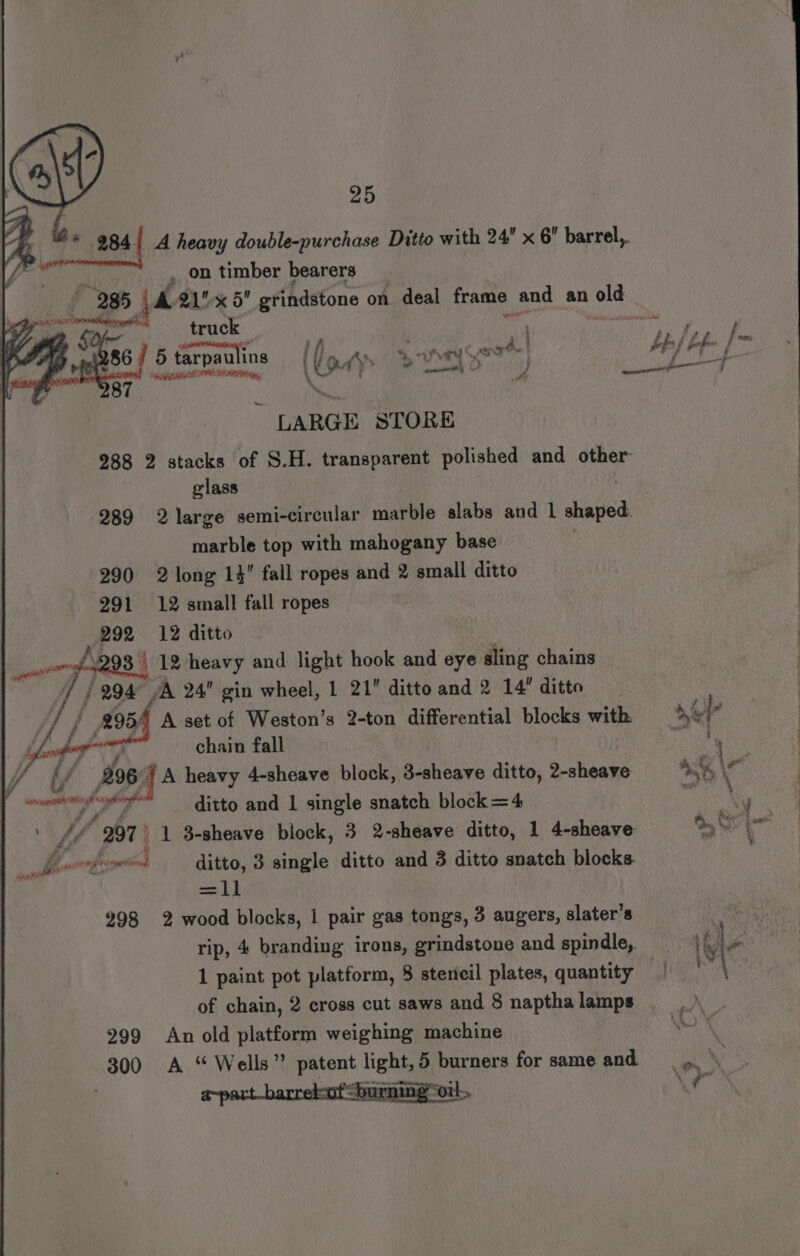 25
284 A heavy double-purchase Ditto with 24" x 6" barrel,
on timber bearers
285 A 21" x 5" grindstone on deal frame and an old
truck
286 5 tarpaulins
287
LARGE STORE
288 2 stacks of S.H. transparent polished and other
glass
289 2 large semi-circular marble slabs and 1 shaped
marble top with mahogany base
290 2 long 1¼" fall ropes and 2 small ditto
291 12 small fall ropes
292 12 ditto
293 12 heavy and light hook and eye sling chains
294 A 24" gin wheel, 1 21" ditto and 2 14" ditto
295 A set of Weston's 2-ton differential blocks with
chain fall
296 A heavy 4-sheave block, 3-sheave ditto, 2-sheave
ditto and 1 single snatch block=4
297 1 3-sheave block, 3 2-sheave ditto, 1 4-sheave
ditto, 3 single ditto and 3 ditto snatch blocks
=11
298 2 wood blocks, 1 pair gas tongs, 3 augers, slater's
rip, 4 branding irons, grindstone and spindle,
1 paint pot platform, 8 stencil plates, quantity
of chain, 2 cross cut saws and 8 naptha lamps
299 An old platform weighing machine
300 A “Wells” patent light, 5 burners for same and
a part barrel of burning oil.